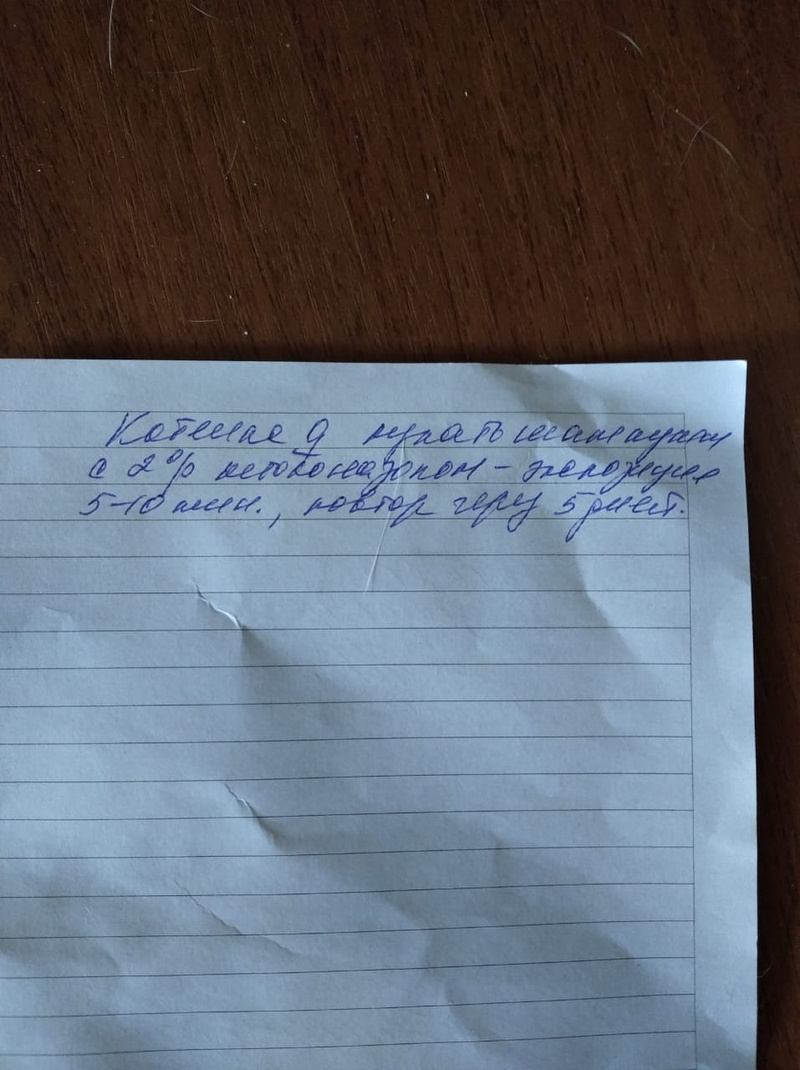 Котенка купать шампунем
с 2% кетоконазолом - экспозиция
5-10 мин., повтор через 5 дней.